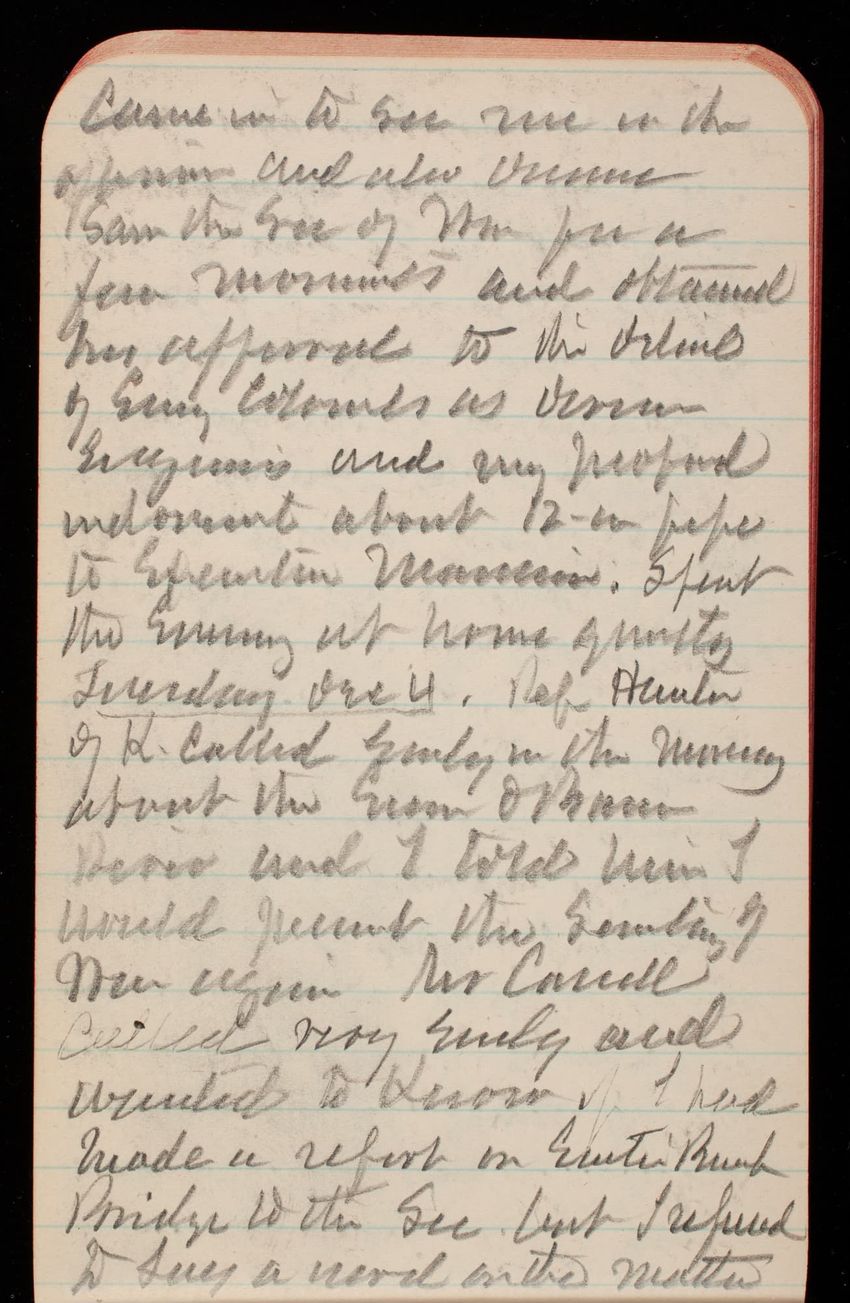 Came in to see me in the
and also
Saw the Sec of War for a
few moments and obtained
his approval to the detail
of Eng Colonels as Division
Engineers and my proposed
indorsement about 12-in pipe
to Executive Mansion. Spent
the Evening at home quietly
Tuesday Dec 4. Rep Hunter
of K. Called Early in the Morning
about the
River and I told him I
would present the of
War again Mr
Called very Early and
wanted to Know if I had
made a report on
Bridge to the Sec but I refused
to say a word on the matter